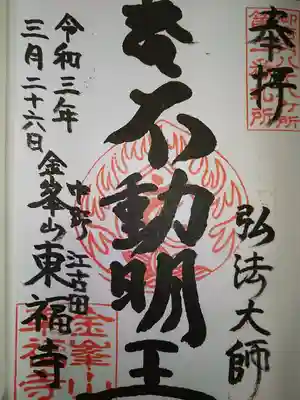 奉拝
弘法大師
不動明王
中野 江古田
金峯山東福寺
三月二十六日
令和三年
金峯山
東福寺